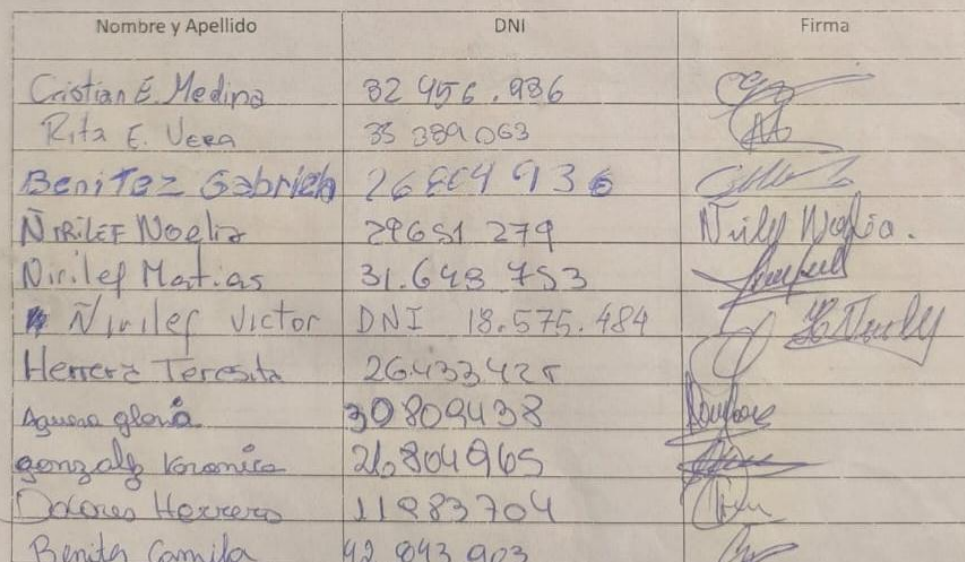 Nombre y Apellido DNI Firma
Cristian E. Medina 32 456.936
Rita E. Vera 35 389.063
Benitez Gabriela 936
Ñirilef Noelia 29651 279 Ñirilef Noelia.
Ñirilef Matias 31.648 753
Ñirilef Victor DNI 18.575.484
Herrera Teresita
Aguero gloria 30809438
gonzalez Veronica 26.804965
Dolores Herrero 11983704
Benitez Camila 42 043 903